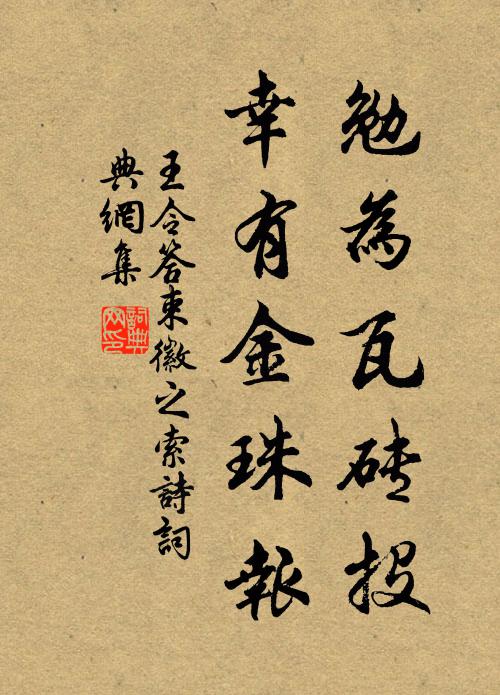 勉為瓦磚投
幸有金珠報
王令答束徽之索詩詞
典網集
詞典網印